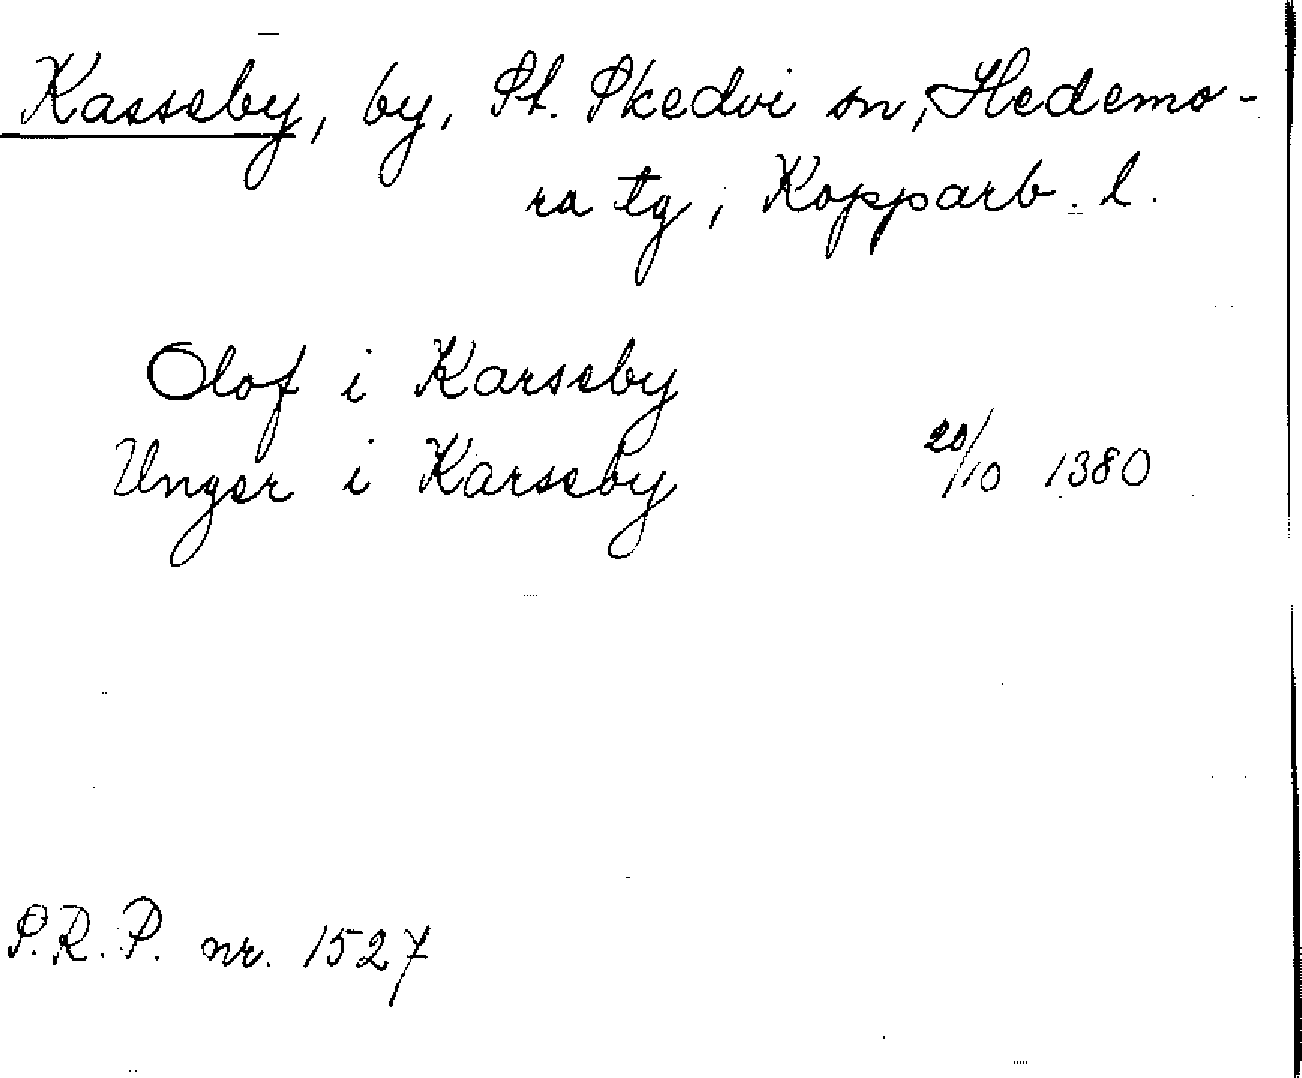 Kassеby, by, St. Skedvi sn, Hedemo-
ra tg, Kopparb. l.
Olof i Karseby
Unger i Karseby 20/10 1380
S.R.P. nr. 1527